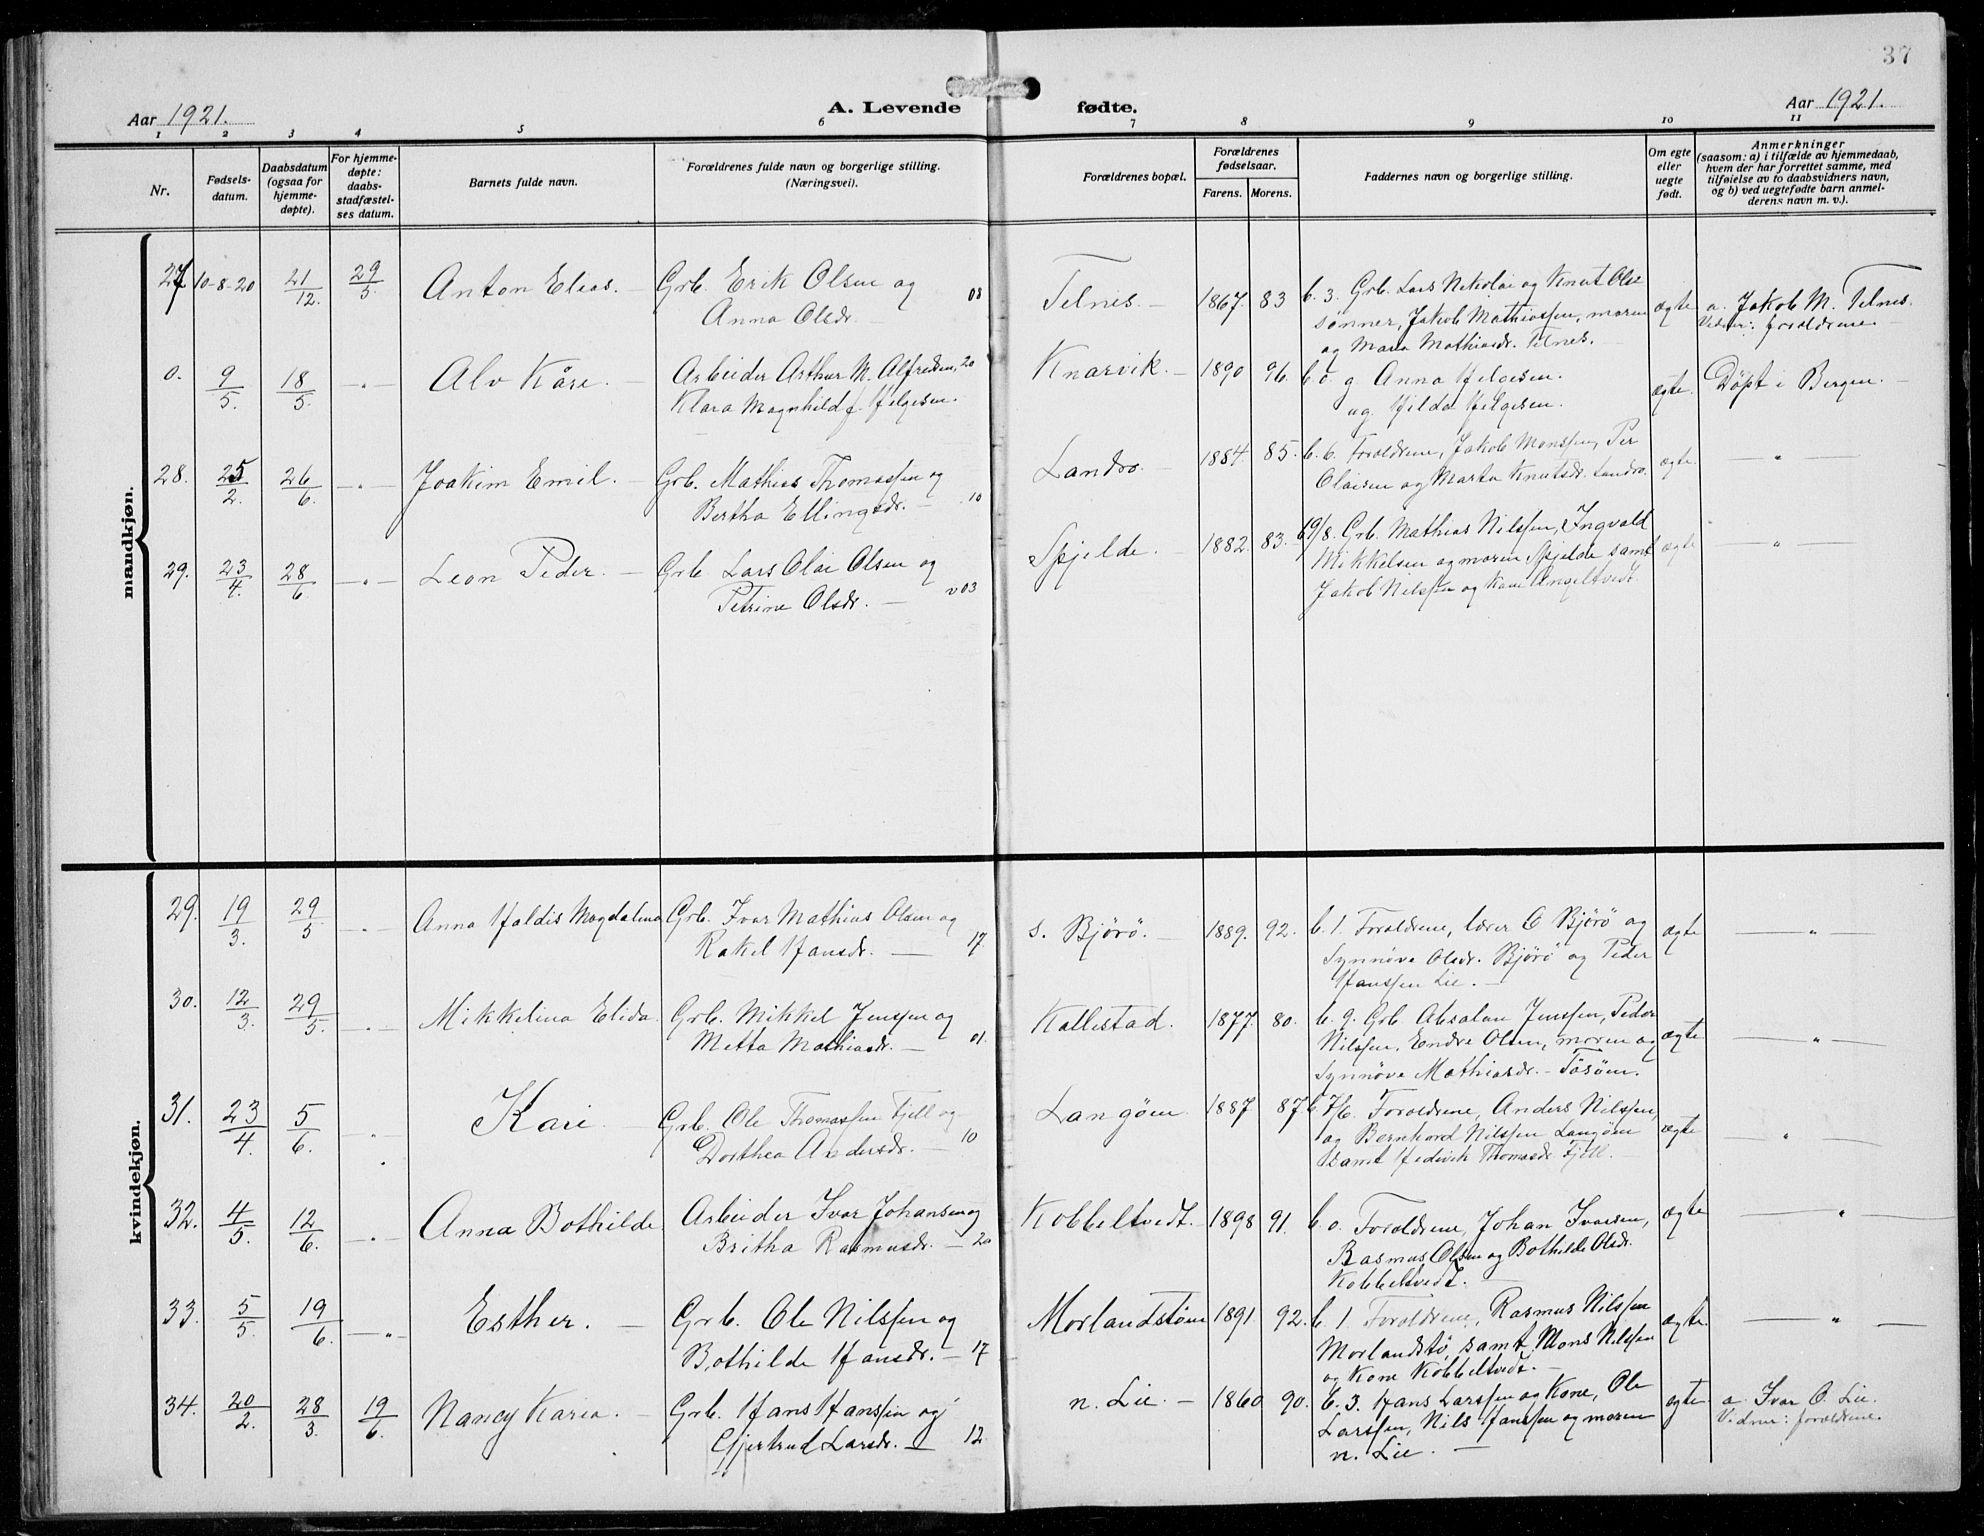 37
Aar 1921.
A. Levende fødte.
Aar 1921.
1 2 3 4 5 6 7 8 9 10 11
Nr.
Fødselsdatum.
Daabsdatum (ogsaa for hjemmedøpte).
For hjemmedøpte: daabsstadfæstelses datum.
Barnets fulde navn.
Forældrenes fulde navn og borgerlige stilling.
(Næringsvei).
Forældrenes bopæl.
Forældrenes fødselsaar.
Farens. Morens.
Faddernes navn og borgerlige stilling.
Om egte eller uegte født.
Anmerkninger
(saasom: a) i tilfælde av hjemmedaab,
hvem der har forrettet samme, med
tilføielse av to daabsvidners navn,
og b) ved uegtefødte barn anmelderens navn m. v.).
mandkjøn.
27 10-8-20 21/12. 29/5. Anton Elias. Grb. Erik Olsen og
Anna Olsdr. 08
Telnes. 1867. 83 b. 3. Grb. Lars Nikolai og Knut Olssønner, Jakob Mathiassen, moren
og Maria Mathiasdr. Telnes.
ægte a. Jakob M. Telnes.
Vidner: forældrene
0. 9/5. 18/5. -"- Alv Kåre. Arbeider Arthur M. Alfredsen, 20
Klara Magnhild f. Helgesen.
Knarvik. 1890 96. b. o. g Anna Helgesen.
ug. Hilda Helgesen.
ægte. Døpt i Bergen.
28. 25/2. 26/6. -"- Joakim Emil. Grb. Mathias Thomassen og
Bertha Ellingsdr. 10
Landro. 1884. 85. b. 6. Forældrene, Jakob Monssen, Per
Olaisen og Marta Knutsdr. Landro.
ægte -"-
29. 23/4. 28/6 -"- Leon Peder. Grb. Lars Olai Olsen og
Petrine Olsdr. v03
Spjelde. 1882. 83. b 9/8. Grb. Mathias Nilssen, Ingvald
Mikkelsen og moren Spjelde samt
Jakob Nilssen og kone Angeltvedt.
ægte -"-
kvindekjøn.
29. 19/3. 29/5 -"- Anna Haldis Magdalena Grb. Ivar Mathias Olsen og
Rakel Hansdr. 17.
s. Bjørø. 1889. 92. b. 1. Forældrene, lærer O Bjørø og
Synnøve Olsdr. Bjørø og Peder
Hanssen Lie.
ægte -"-
30. 12/3. 29/5. -"- Mikkelina Elida. Grb. Mikkel Jenssen og
Metta Mathiasdr. 01.
Kallestad. 1877. 80. b. 9. Grb. Absalon Jenssen, Peder
Nilssen, Endre Olsen, moren og
Synnøve Mathiasdr. Tøsøen.
ægte -"-
31. 23/4. 5/6. -"- Kari Grb. Ole Thomassen Fjell og
Dorthea Andersdr. 10
Langøen 1887 87 b 7/6. Forældrene, Anders Nilssen
og Bernhard Nilssen Langøen
samt Hedevik Thomasdr. Fjell.
ægte -"-
32. 4/5. 12/6. -"- Anna Bothilde Arbeider Ivar Johansen og
Britha Rasmusdr. 20
Kobbeltvedt. 1898 91. b. o. Forældrene, Johan Ivarsen,
Rasmus Olsen og Bothilde Olsdr.
Kobbeltvedt.
ægte -"-
33. 5/5. 19/6. -"- Esther. Grb. Ole Nilssen og
Bothilde Hansdr. 17
Morlandstøen 1891 92. b. 1. Forældrene, Rasmus Nilssen
Morlandstø, samt Mons Nilssen
og Kone Kobbeltvedt.
ægte. -"-
34. 20/2. 28/3. 19/6. Nancy Karia. Grb. Hans Hanssen og
Gjertrud Larsdr. 12.
n. Lie. 1860 90. b. 3. Hans Larssen og Kone, Ole
Larssen, Nils Hanssen og moren
n. Lie.
ægte a. Ivar O. Lie.
Vidner: forældrene.